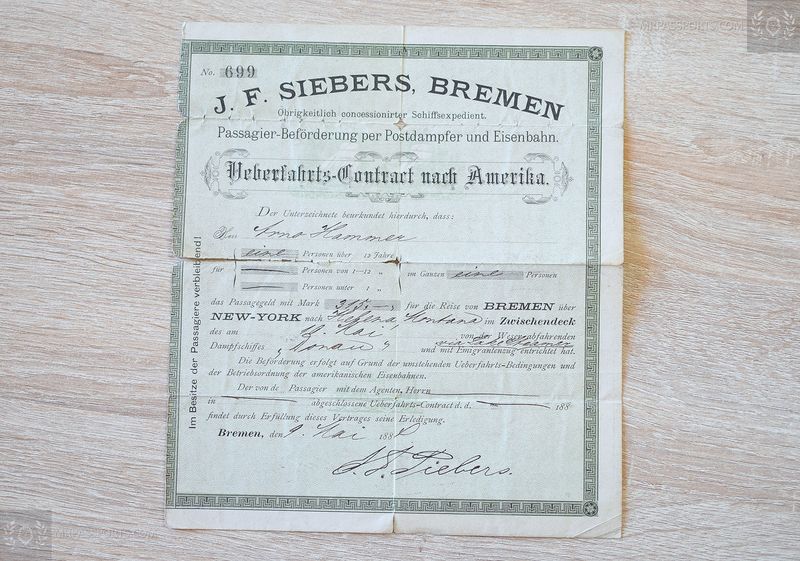 MRPASSPORTS.COM
No. 699
J. F. SIEBERS, BREMEN
Obrigkeitlich concessionirter Schiffsexpedient.
Passagier-Beförderung per Postdampfer und Eisenbahn.
Ueberfahrts-Contract nach Amerika.
Der Unterzeichnete beurkundet hierdurch, dass:
Herr Arno Hammer
eine Personen über 12 Jahre
für Personen von 1—12 „ im Ganzen eine Personen
Personen unter 1 „
das Passagegeld mit Mark 315.— für die Reise von BREMEN über
NEW-YORK nach Helena, Montana im Zwischendeck
des am Mai von der Weser abfahrenden
Dampfschiffes „Donau“ via und mit Emigrantenzug entrichtet hat.
Die Beförderung erfolgt auf Grund der umstehenden Ueberfahrts-Bedingungen und
der Betriebsordnung der amerikanischen Eisenbahnen.
Der von de Passagier mit dem Agenten, Herrn
in abgeschlossene Ueberfahrts-Contract d. d. 188
findet durch Erfüllung dieses Vertrages seine Erledigung.
Bremen, den 9. Mai 188
J. F. Siebers.
Im Besitze der Passagiere verbleibend!
MRPASSPORTS.COM